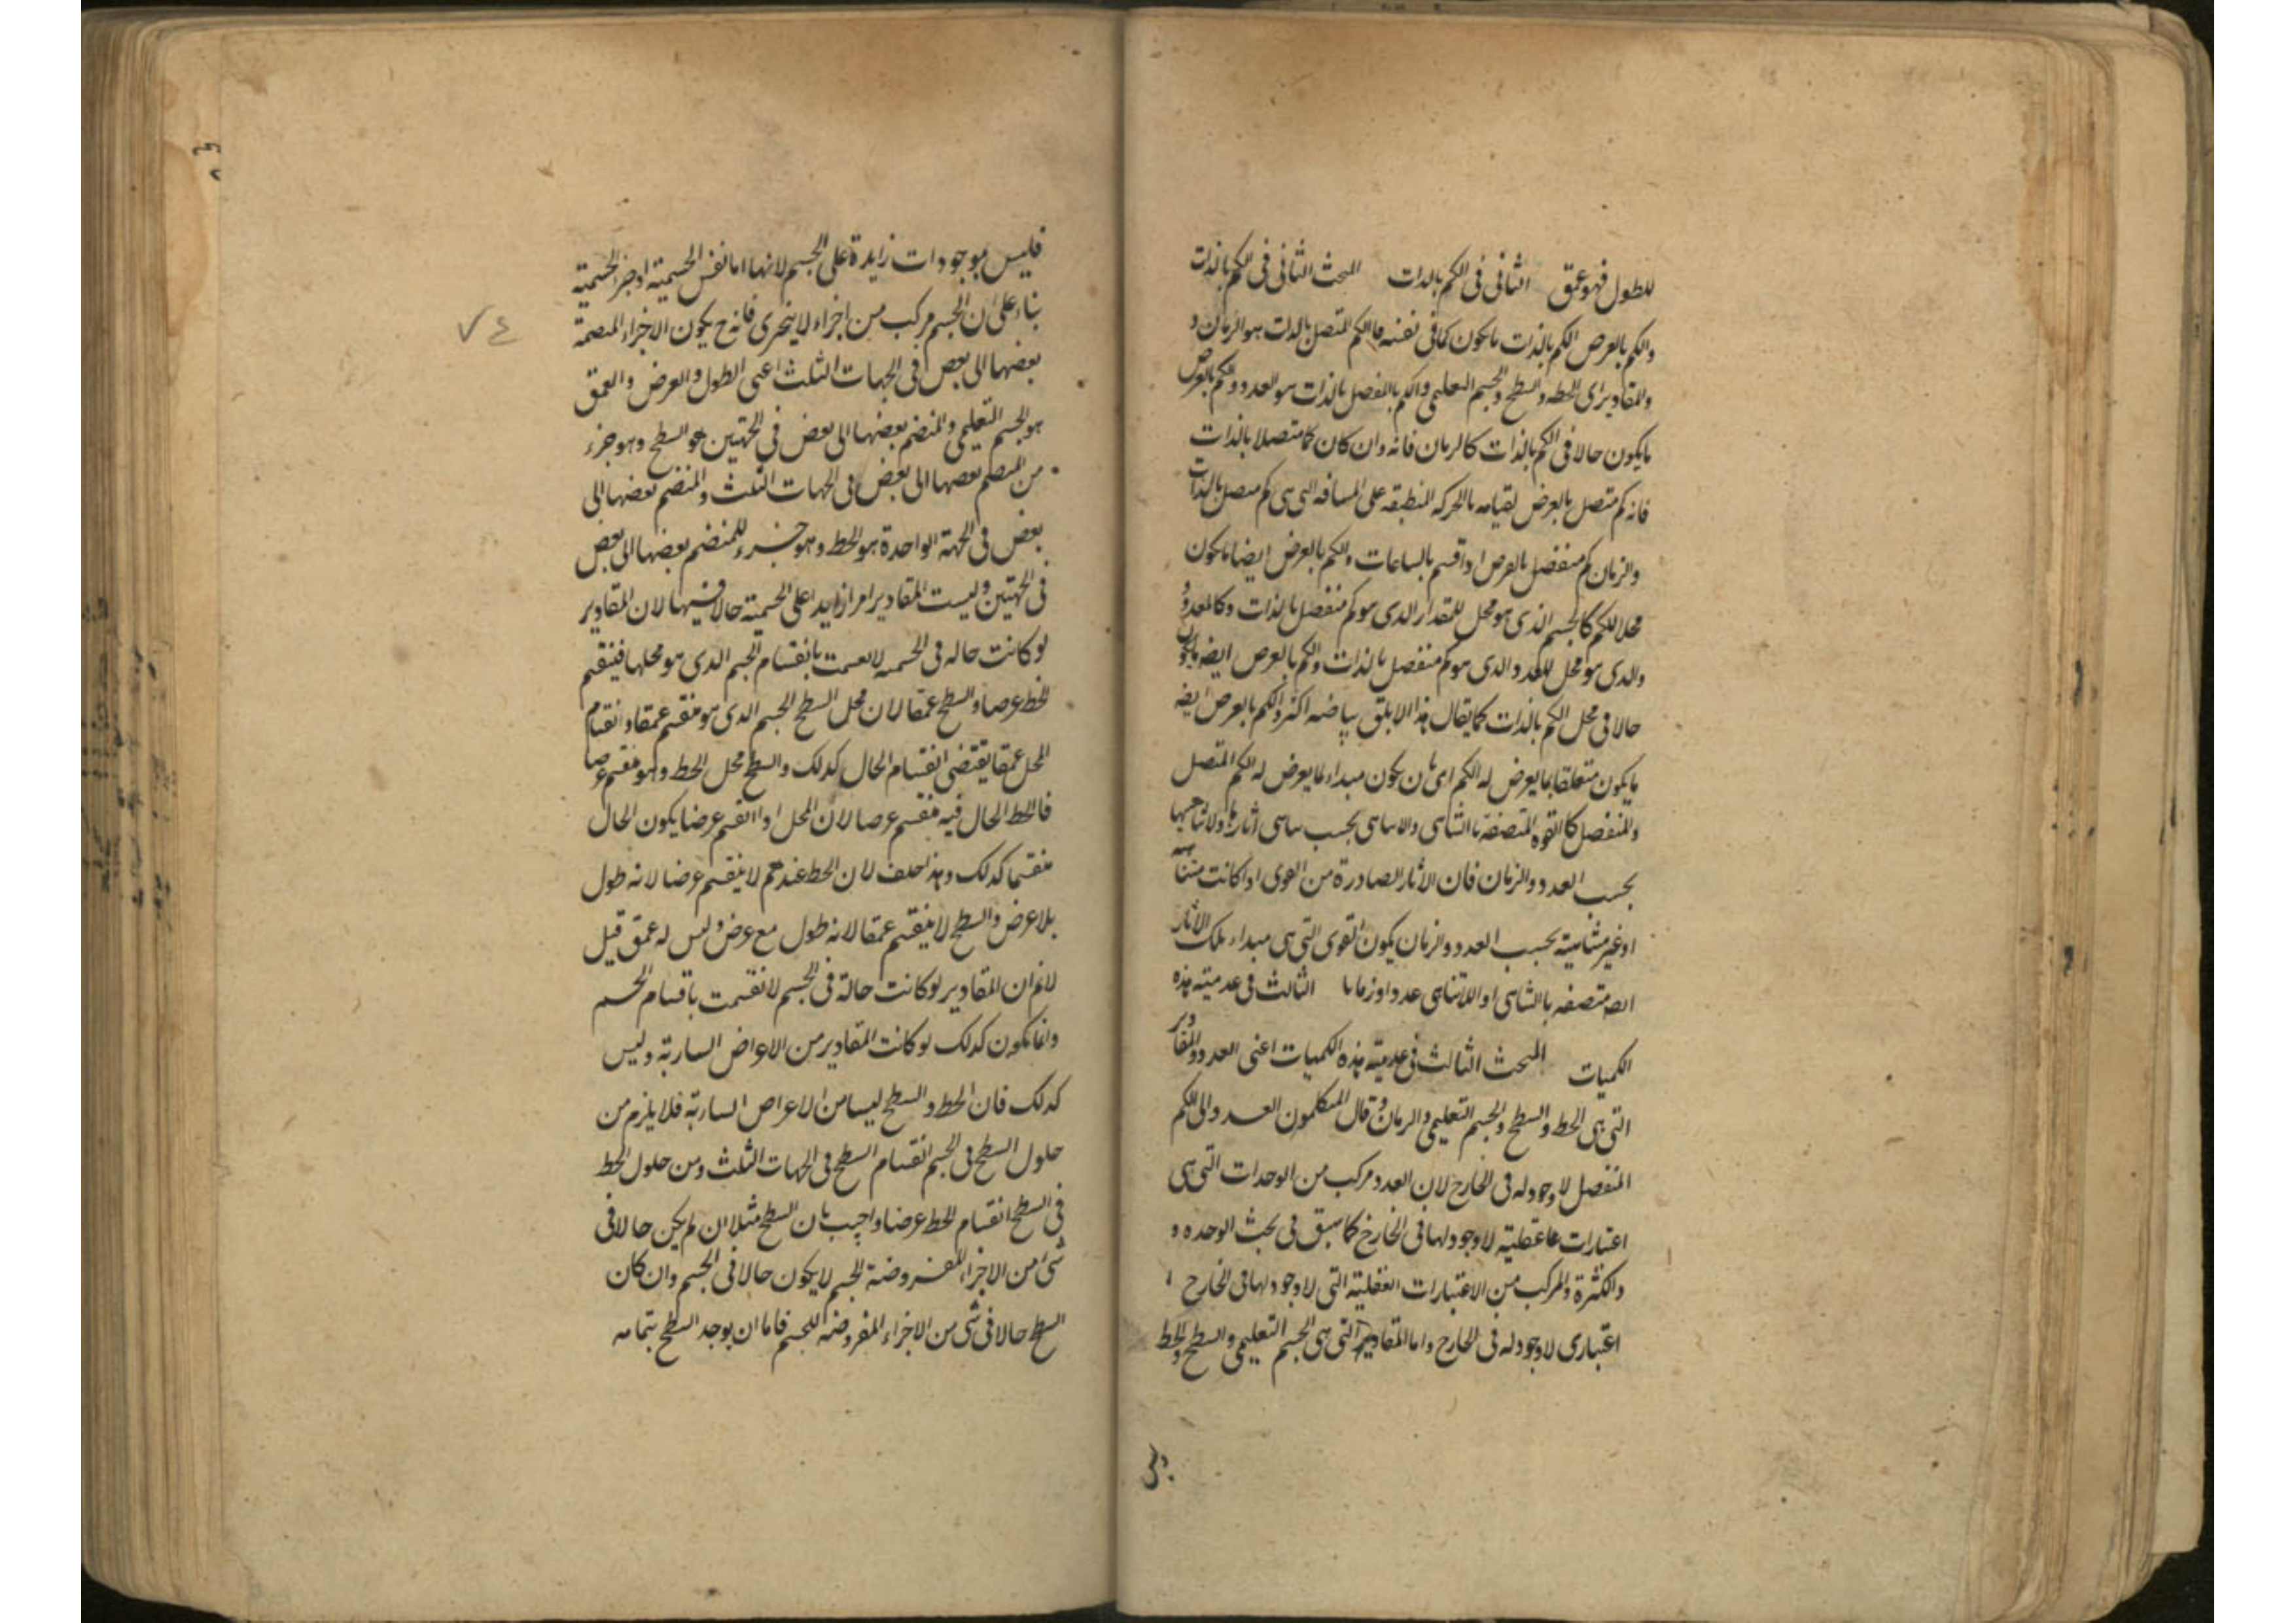 للطول فهو عمق الثانى فى الكم بالذات المبحث الثانى فى الكم بالذات
والكم بالعرض الكم بالذات ما يكون كما فى نفسه فالكم المتصل بالذات هو الزمان و
والمقادير اى الخط والسطح والجسم التعليمى والكم بالمنفصل بالذات هو العدد والكم بالعرض
ما يكون حالا فى الكم بالذات كالزمان فانه وان كان كما متصلا بالذات
فانه كم متصل بالعرض لقيامه بالحركه المنطبقه على المسافه التى هى كم متصل بالذات
والزمان كم منفصل بالعرض اذا قسم بالساعات والكم بالعرض ايضا ما يكون
محلا للكم كالجسم الذى هو محل للمقدار الذى هو كم منفصل بالذات وكالمعدود
والذى هو محل للعدد الذى هو كم منفصل بالذات والكم بالعرض ايضا ما يكون
حالا فى محل الكم بالذات كما يقال هذا الابلق بياضه اكثر والكم بالعرض ايضه
ما يكون متعلقا بما يعرض له الكم اى بان يكون مبداء لما يعرض له الكم المتصل
والمنفصل كالقوه المتصفة بالتناهى واللاتناهى بحسب تناهى اثارها ولا تناهيها
بحسب العدد والزمان فان الاثار الصادرة من القوى اذا كانت متناهيه
او غير متناهية بحسب العدد والزمان يكون القوى التى هى مبداء تلك الاثار
ايضه متصفه بالتناهى او اللاتناهى عددا وزمانا الثالث فى عدمية هذه
الكميات المبحث الثالث فى عدمية هذه الكميات اعنى العدد والمقادير
التى هى الخط والسطح والجسم التعليمى والزمان قال المتكلمون العدد والى الكم
المنفصل لا وجود له فى الخارج لان العدد مركب من الوحدات التى هى
اعتبارات عقلية لا وجود لها فى الخارج كما سبق فى بحث الوحده و
والكثرة والمركب من الاعتبارات العقلية التى لا وجود لها فى الخارج
اعتبارى لا وجود له فى الخارج واما المقادير التى هى الجسم التعليمى والسطح والخط
فليس
فليس بموجودات زايدة على الجسم لانها اما نفس الجسمية او جزء الجسمية
بناء على ان الجسم مركب من اجزاء لا يتجزى فانه ح يكون الاجزاء المنضمة
بعضها الى بعض فى الجهات الثلث اعنى الطول والعرض والعمق
هو الجسم التعليمى والمنضم بعضها الى بعض فى الجهتين هو السطح وهو جزء
من المنضم بعضها الى بعض فى الجهات الثلث والمنضم بعضها الى
بعض فى الجهة الواحدة هو الخط وهو جزء للمنضم بعضها الى بعض
فى الجهتين وليست المقادير امرا زايدا على الجسمية حالا فيها لان المقادير
لو كانت حاله فى الجسميه لانقسمت بانقسام الجسم الذى هو محلها فينقسم
الخط عرضا والسطح عمقا لان محل السطح الجسم الذى هو منقسم عمقا وانقسام
المحل عمقا يقتضى انقسام الحال كذلك والسطح محل الخط وهو منقسم عرضا
فالخط الحال فيه منقسم عرضا لان المحل اذا انقسم عرضا يكون الحال
منقسما كذلك وهذا خلف لان الخط عندهم لا ينقسم عرضا لانه طول
بلا عرض والسطح لا ينقسم عمقا لانه طول مع عرض وليس له عمق قيل
لانم ان المقادير لو كانت حالة فى الجسم لانقسمت باقسام الجسم
وانما يكون كذلك لو كانت المقادير من الاعراض السارية وليس
كذلك فان الخط والسطح ليسا من الاعراض السارية فلا يلزم من
حلول السطح فى الجسم انقسام السطح فى الجهات الثلث ومن حلول الخط
فى السطح انقسام الخط عرضا واجيب بان السطح مثلا ان لم يكن حالا فى
شئ من الاجزاء المفروضة للجسم لا يكون حالا فى الجسم وان كان
السطح حالا فى شئ من الاجزاء المفروضه للجسم فاما ان يوجد السطح بتمامه
٧٤